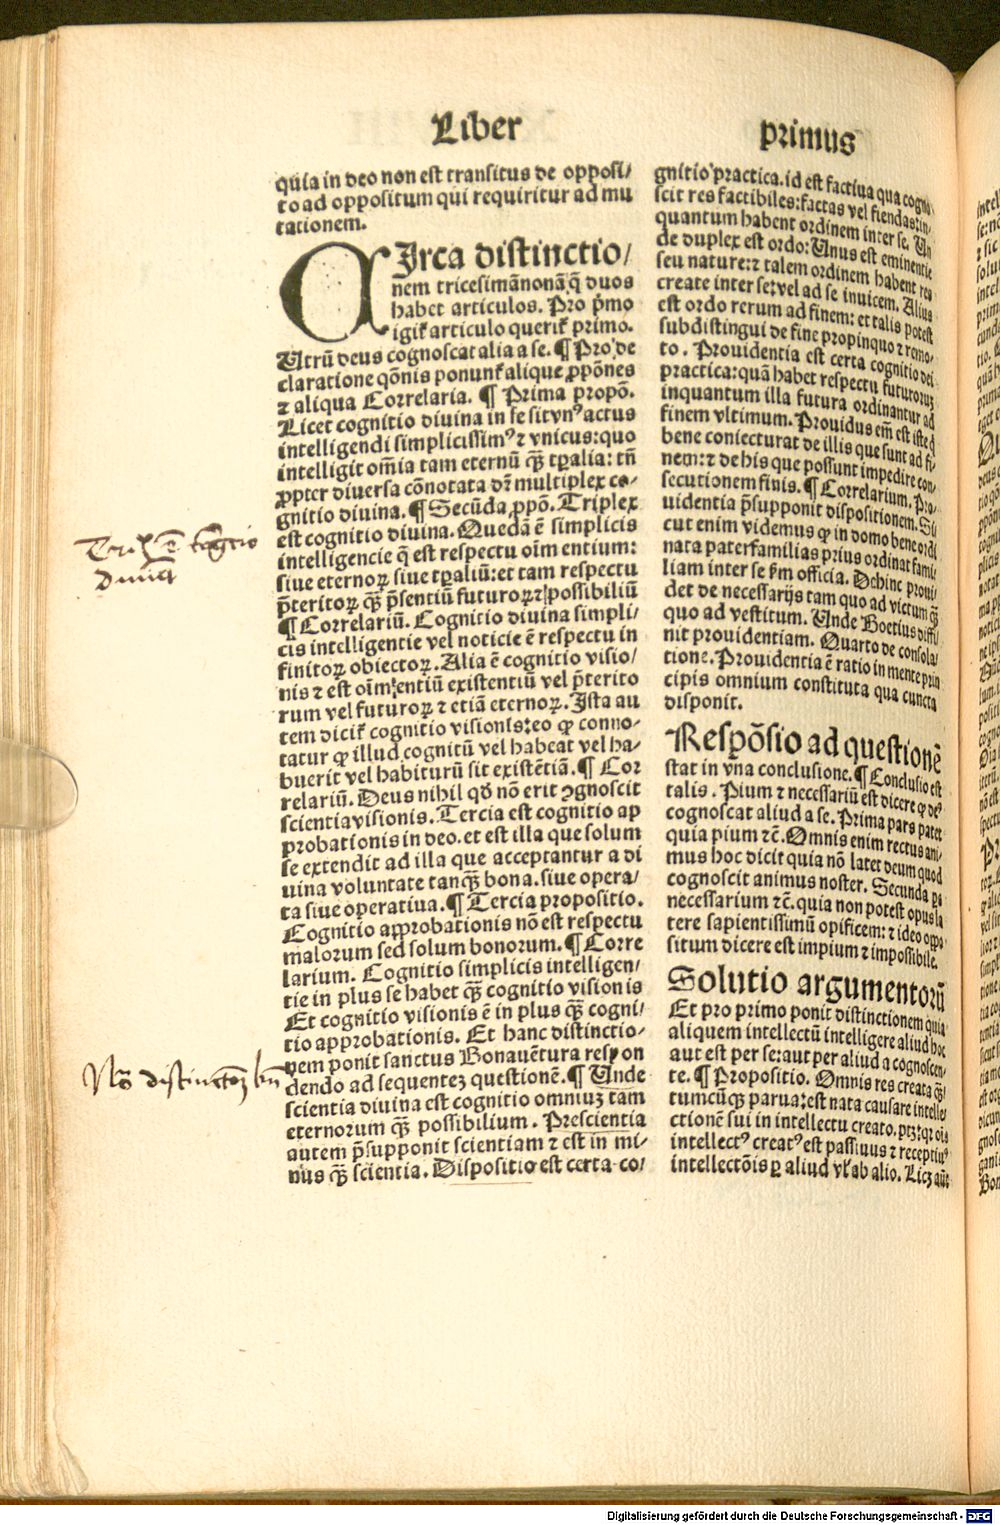 Liber primus
quia in deo non est transitus de opposi-
to ad oppositum qui requiritur ad mu
tationem.
CIrca distinctio/
nem tricesimānonā q̄ duos
habet articulos. Pro p̄mo
igit̄ articulo querit̄ primo.
Utrū deus cognoscat alia a se. ¶ Pro de
claratione q̄onis ponunt̄ alique ꝓpōnes
⁊ aliqua Correlaria. ¶ Prima propō.
Licet cognitio diuina in se sit vnꝰ actus
intelligendi simplicissimꝰ ⁊ vnicus: quo
intelligit om̄ia tam eternū q̄ꝫ tꝑalia: tn̄
ꝓpter diuersa cōnotata dr̄ multiplex co-
gnitio diuina. ¶ Secūda ꝓpō. Triplex
est cognitio diuina. Quedā ē simplicis
intelligencie q̄ est respectu oīm entium:
siue eternoꝝ siue tꝑaliū: et tam respectu
p̄teritoꝝ q̄ꝫ p̄sentiū futuroꝝ ⁊ possibiliū
¶ Correlariū. Cognitio diuina simpli/
cis intelligentie vel noticie ē respectu in
finitoꝝ obiectoꝝ. Alia ē cognitio visio/
nis ⁊ est oīm entiū existentiū vel p̄terito
rum vel futuroꝝ ⁊ etiā eternoꝝ. Ista au
tem dicit̄ cognitio visionis: eo ꝙ conno-
tatur ꝙ illud cognitū vel habeat vel ha-
buerit vel habiturū sit existētiā. ¶ Cor
relariū. Deus nihil qd̄ nō erit ꝯgnoscit
scientia visionis. Tercia est cognitio ap
probationis in deo. et est illa que solum
se extendit ad illa que acceptantur a di
uina voluntate tanq̄ꝫ bona. siue opera/
ta siue operatiua. ¶ Tercia propositio.
Cognitio approbationis nō est respectu
malorum sed solum bonorum. ¶ Corre
larium. Cognitio simplicis intelligen/
tie in plus se habet q̄ꝫ cognitio visionis
Et cognitio visionis ē in plus q̄ꝫ cogni/
tio approbationis. Et hanc distinctio-
nem ponit sanctus Bonauētura respon
dendo ad sequenteꝫ questionē. ¶ Unde
scientia diuina est cognitio omniuꝫ tam
eternorum q̄ꝫ possibilium. Prescientia
autem p̄supponit scientiam ⁊ est in mi-
nus q̄ꝫ scientia. Dispositio est certa co/
gnitio practica. id est factiua qua cogno
scit res factibiles: factas vel fiendas: in-
quantum habent ordinem inter se. Un
de duplex est ordo: Unus est eminentie
seu nature: ⁊ talem ordinem habent res
create inter se: vel ad se inuicem. Alius
est ordo rerum ad finem: et talis potest
subdistingui de fine propinquo ⁊ remo-
to. Prouidentia est certa cognitio dei
practica: quā habet respectu futuroruꝫ
inquantum illa futura ordinantur ad
finem vltimum. Prouidus em̄ est iste q̇
bene coniecturat de illis que sunt ad fi-
nem: ⁊ de his que possunt impedire con-
secutionem finis. ¶ Correlarium. Pro-
uidentia p̄supponit dispositionem. Si
cut enim videmus ꝙ in domo bene ordi
nata paterfamilias prius ordinat fami-
liam inter se s̄m officia. Dehinc proui-
det de necessarijs tam quo ad victum q̄ꝫ
quo ad vestitum. Unde Boetius diffi-
nit prouidentiam. Quarto de consola/
tione. Prouidentia ē ratio in mente prin
cipis omnium constituta qua cuncta
disponit.
Respōsio ad questionē
stat in vna conclusione. ¶ Conclusio est
talis. Pium ⁊ necessariū est dicere ꝙ deꝰ
cognoscat aliud a se. Prima pars patet
quia pium ⁊c̄. Omnis enim rectus ani-
mus hoc dicit quia nō latet deum quod
cognoscit animus noster. Secunda ps
necessarium ⁊c̄. quia non potest opus la
tere sapientissimū opificem: ⁊ ideo oppo
situm dicere est impium ⁊ impossibile.
Solutio argumentorū
Et pro primo ponit distinctionem quia
aliquem intellectū intelligere aliud hoc
aut est per se: aut per aliud a cognoscen-
te. ¶ Propositio. Omnis res creata q̄ꝫ-
tumcūqꝫ parua: est nata causare intelle-
ctionē sui in intellectu creato. ptꝫ: qꝛ ois
intellectꝰ creatꝰ est passiuus ⁊ receptiuꝰ
intellectōis ꝑ aliud vl̓ ab alio. Licꝫ aūt
diuina